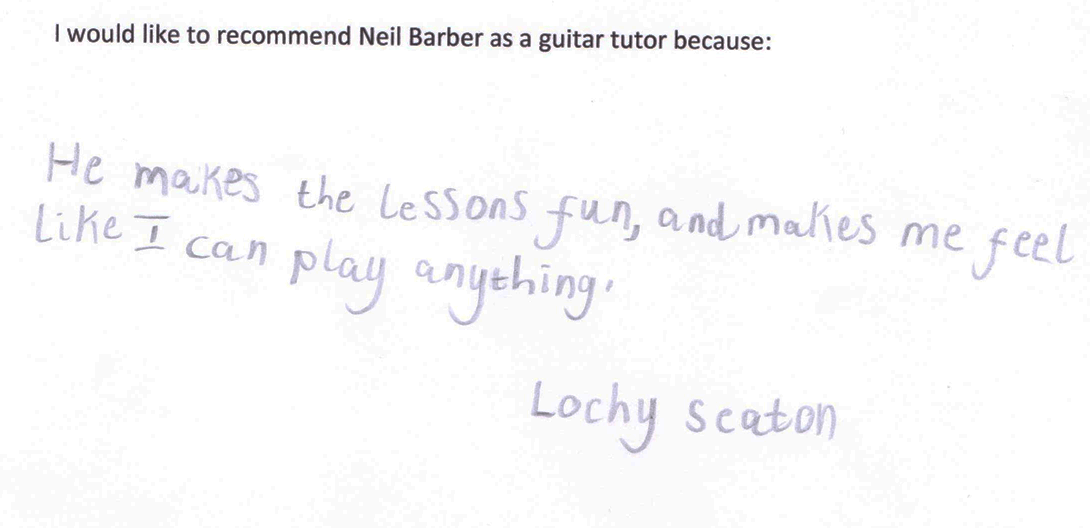 I would like to recommend Neil Barber as a guitar tutor because:
He makes the Lessons fun, and makes me feel
Like I can play anything.
Lochy seaton